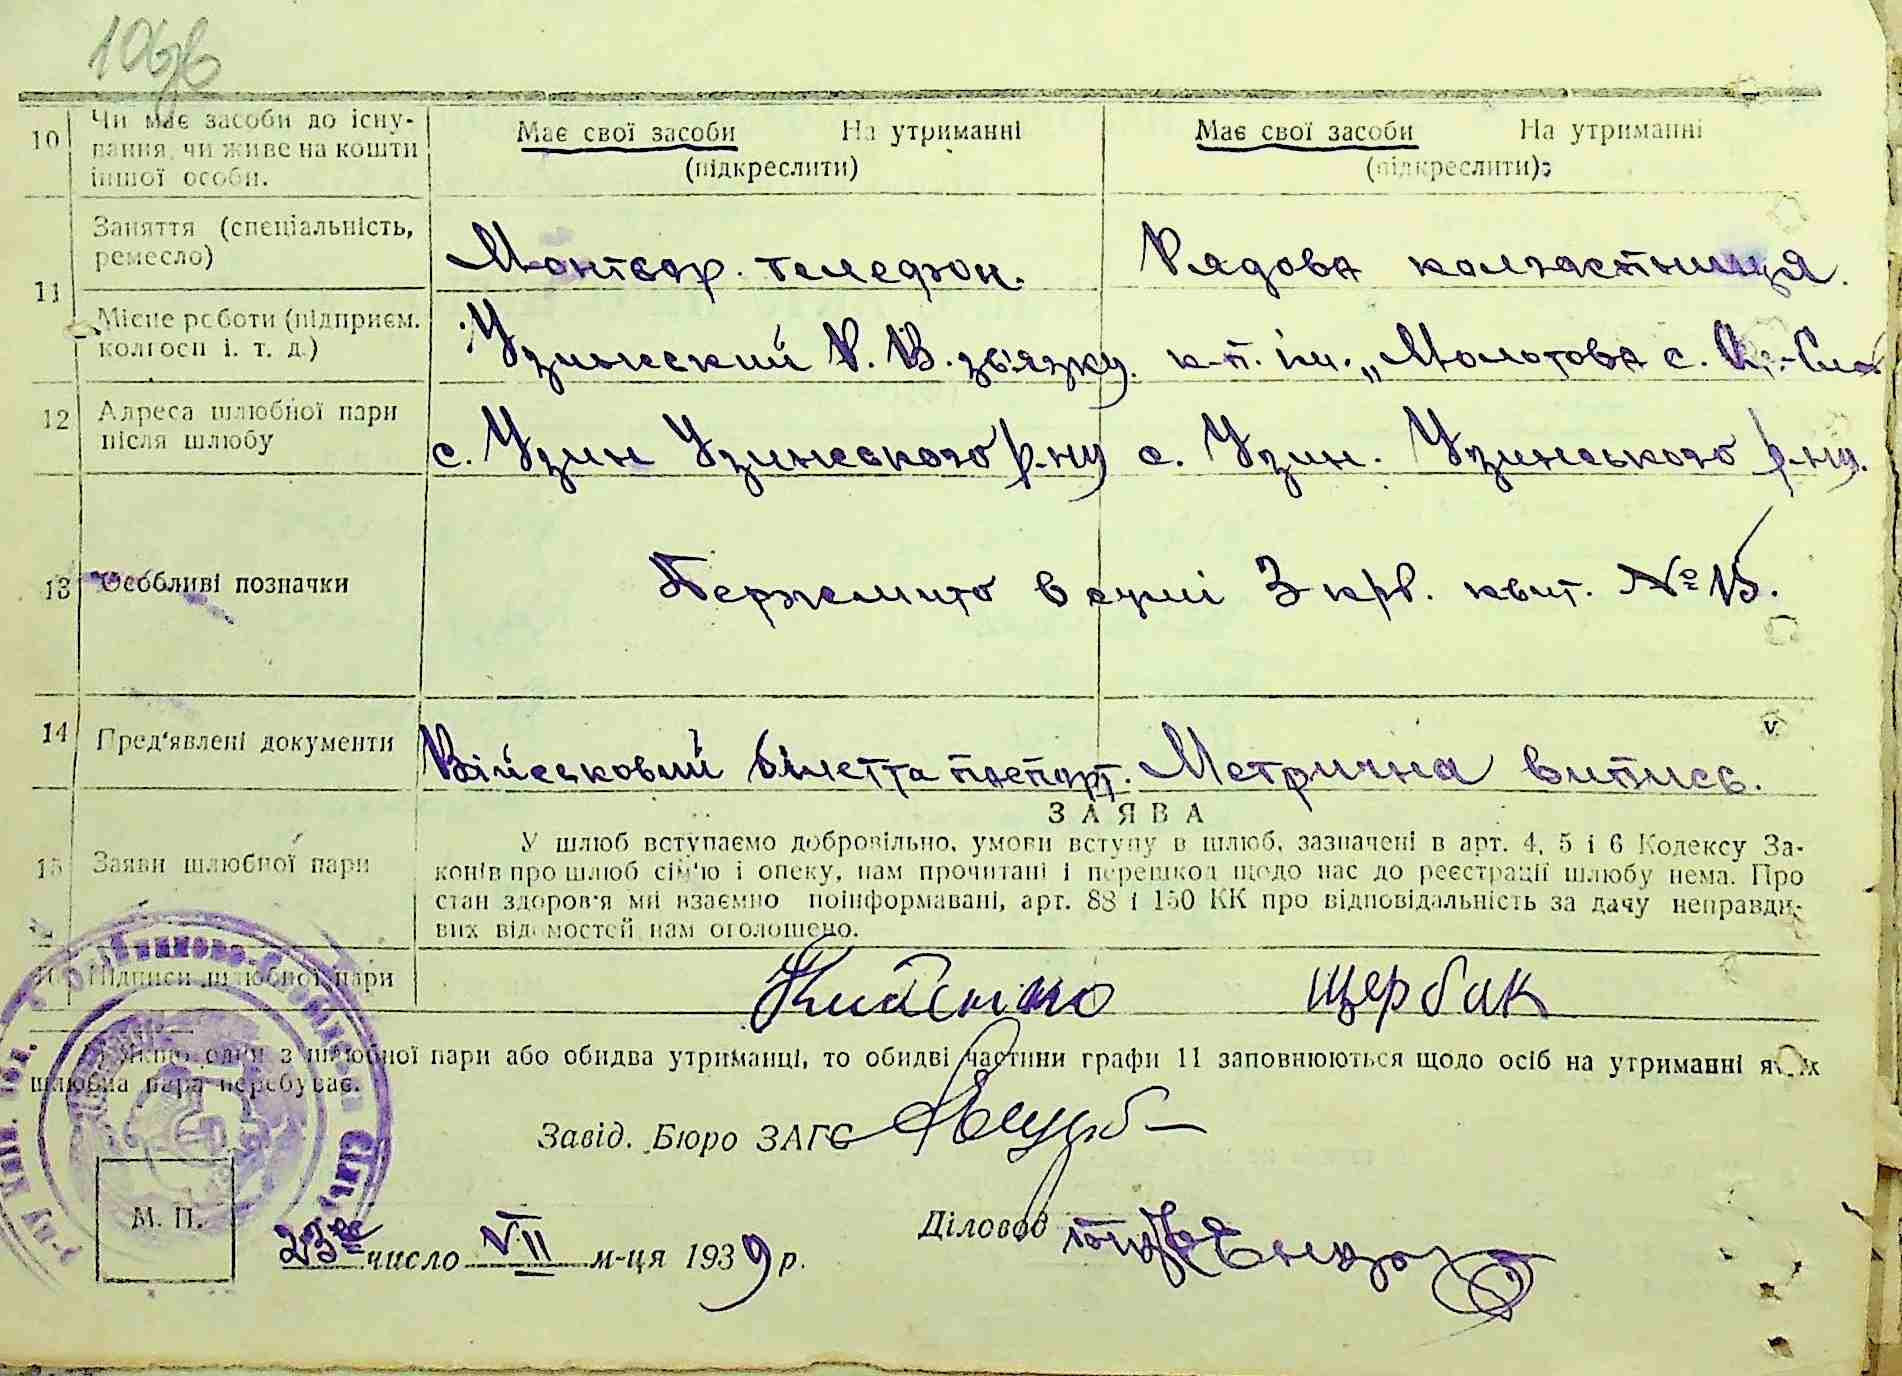 106
10 Чи має засоби до існу-
вання, чи живе на кошти
іншої особи.
Має свої засоби На утриманні
(підкреслити)
Має свої засоби На утриманні
(підкреслити)
11 Заняття (спеціальність,
ремесло)
Монтьор. телефон.
Рядова колгостниця.
Місце роботи (підприєм.
колгосп і. т. д.)
Узинський Р. В. зв'язку.
к-п. ім. „Молотова с.
12 Адреса шлюбної пари
після шлюбу
с. Узин Узинського р-ну
с. Узин. Узинського р-ну.
13 Особливі позначки
Держмито в сумі 3 крб. квит. № 15.
14 Пред'явлені документи
Військовий білет та паспорт.
Метрична випись.
ЗАЯВА
15 Заяви шлюбної пари
У шлюб вступаємо добровільно, умови вступу в шлюб, зазначені в арт. 4, 5 і 6 Кодексу За-
конів про шлюб сім'ю і опеку, нам прочитані і перешкод щодо нас до реєстрації шлюбу нема. Про
стан здоров'я ми взаємно поінформавані, арт. 88 і 150 КК про відповідальність за дачу неправди-
вих відомостей нам оголошено.
16 Підписи шлюбної пари
Щербак
Якщо один з шлюбної пари або обидва утриманці, то обидві частини графи 11 заповнюються щодо осіб на утриманні яких
шлюбна пара перебуває.
Завід. Бюро ЗАГС
М. П.
23го число VII м-ця 1939 р.
Діловод